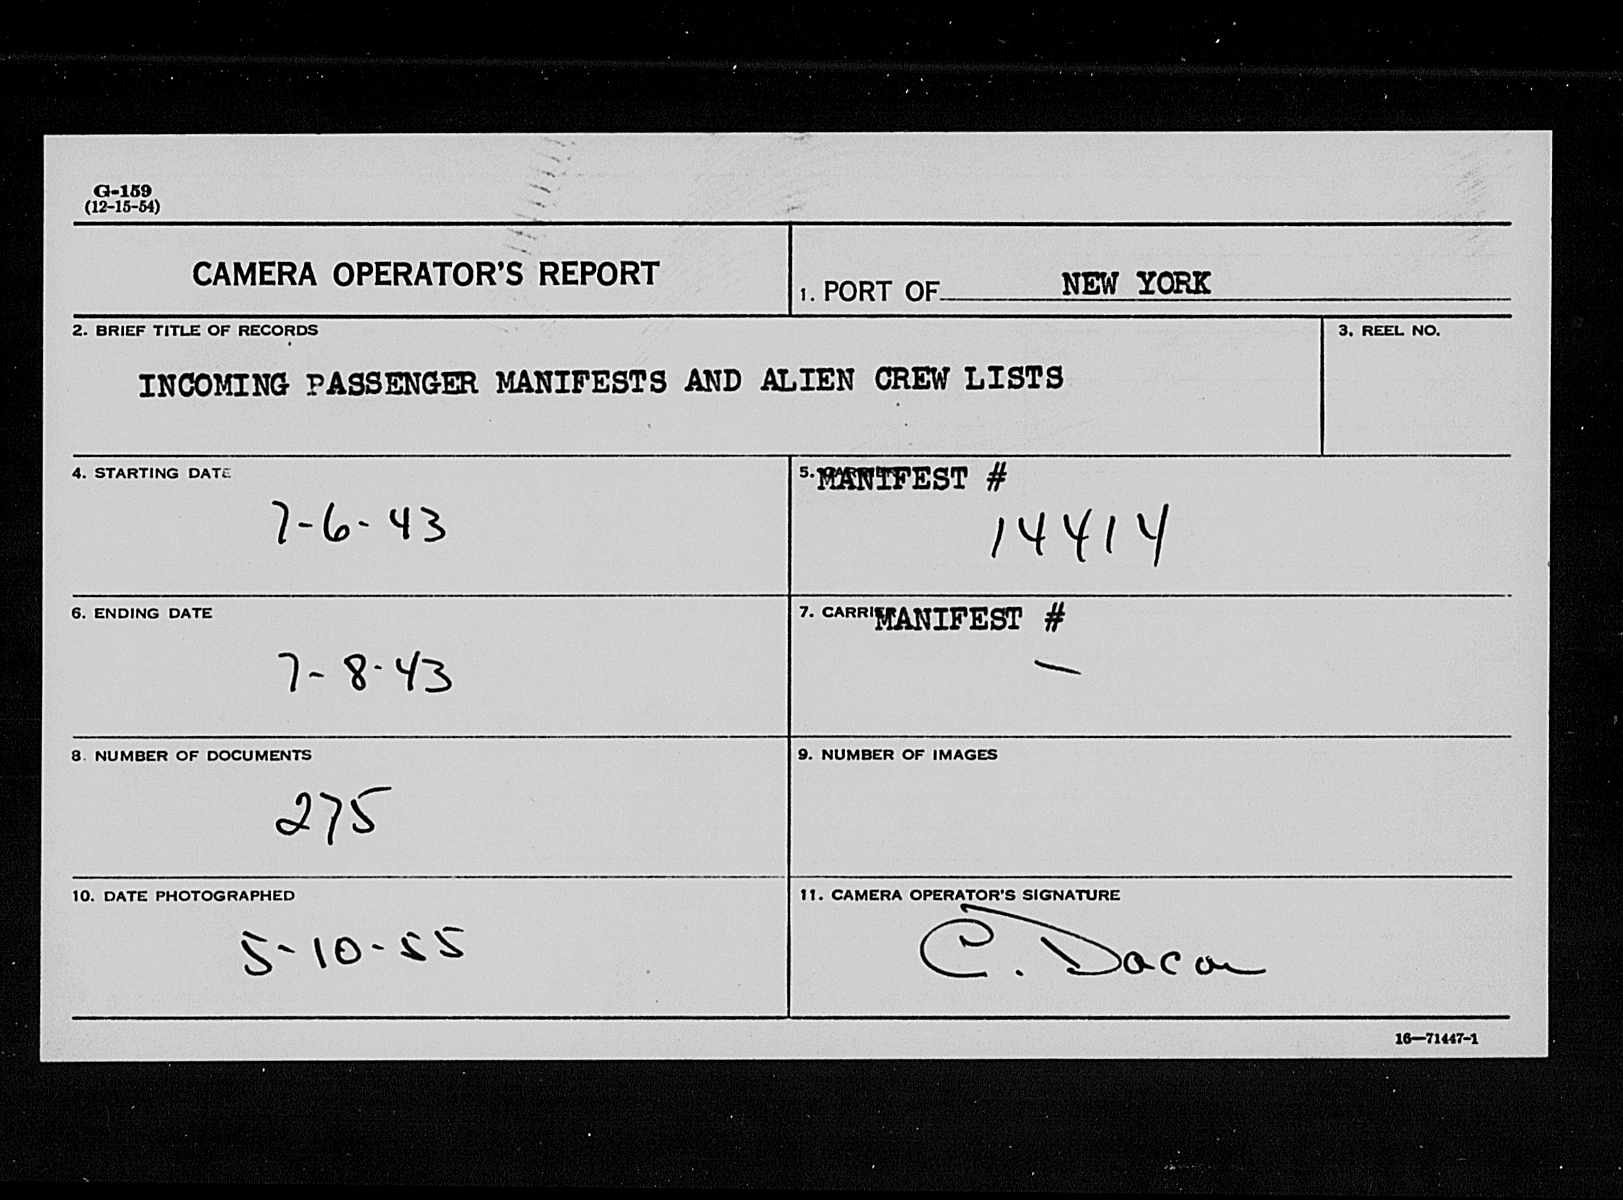 G-159
(12-15-54)
CAMERA OPERATOR'S REPORT
1. PORT OF NEW YORK
2. BRIEF TITLE OF RECORDS
INCOMING PASSENGER MANIFESTS AND ALIEN CREW LISTS
3. REEL NO.
4. STARTING DATE
7-6-43
5. MANIFEST #
14414
6. ENDING DATE
7-8-43
7. CARRI MANIFEST #
—
8. NUMBER OF DOCUMENTS
275
9. NUMBER OF IMAGES
10. DATE PHOTOGRAPHED
5-10-55
11. CAMERA OPERATOR'S SIGNATURE
C.
16—71447-1